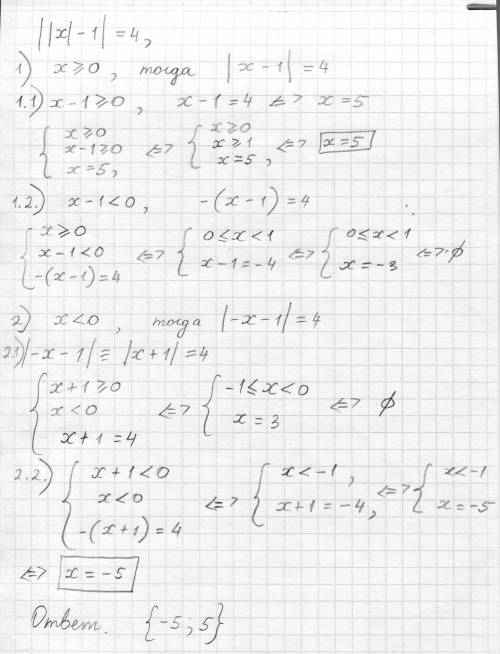 ||x| - 1| = 4,
1) x ≥ 0, тогда |x - 1| = 4
1.1) x - 1 ≥ 0, x - 1 = 4 <=> x = 5
{ x ≥ 0 x - 1 ≥ 0 x = 5, <=> { x ≥ 0 x ≥ 1 x = 5, <=> x = 5
1.2.) x - 1 < 0, -(x - 1) = 4
{ x ≥ 0 x - 1 < 0 -(x - 1) = 4 <=> { 0 ≤ x < 1 x - 1 = -4 <=> { 0 ≤ x < 1 x = -3 <=> ∅
2) x < 0, тогда |-x - 1| = 4
2.1) |-x - 1| ≡ |x + 1| = 4
{ x + 1 ≥ 0 x < 0 x + 1 = 4 <=> { -1 ≤ x < 0 x = 3 <=> ∅
2.2.) { x + 1 < 0 x < 0 -(x + 1) = 4 <=> { x < -1, x + 1 = -4, <=> { x < -1 x = -5
<=> x = -5
Ответ. {-5; 5}